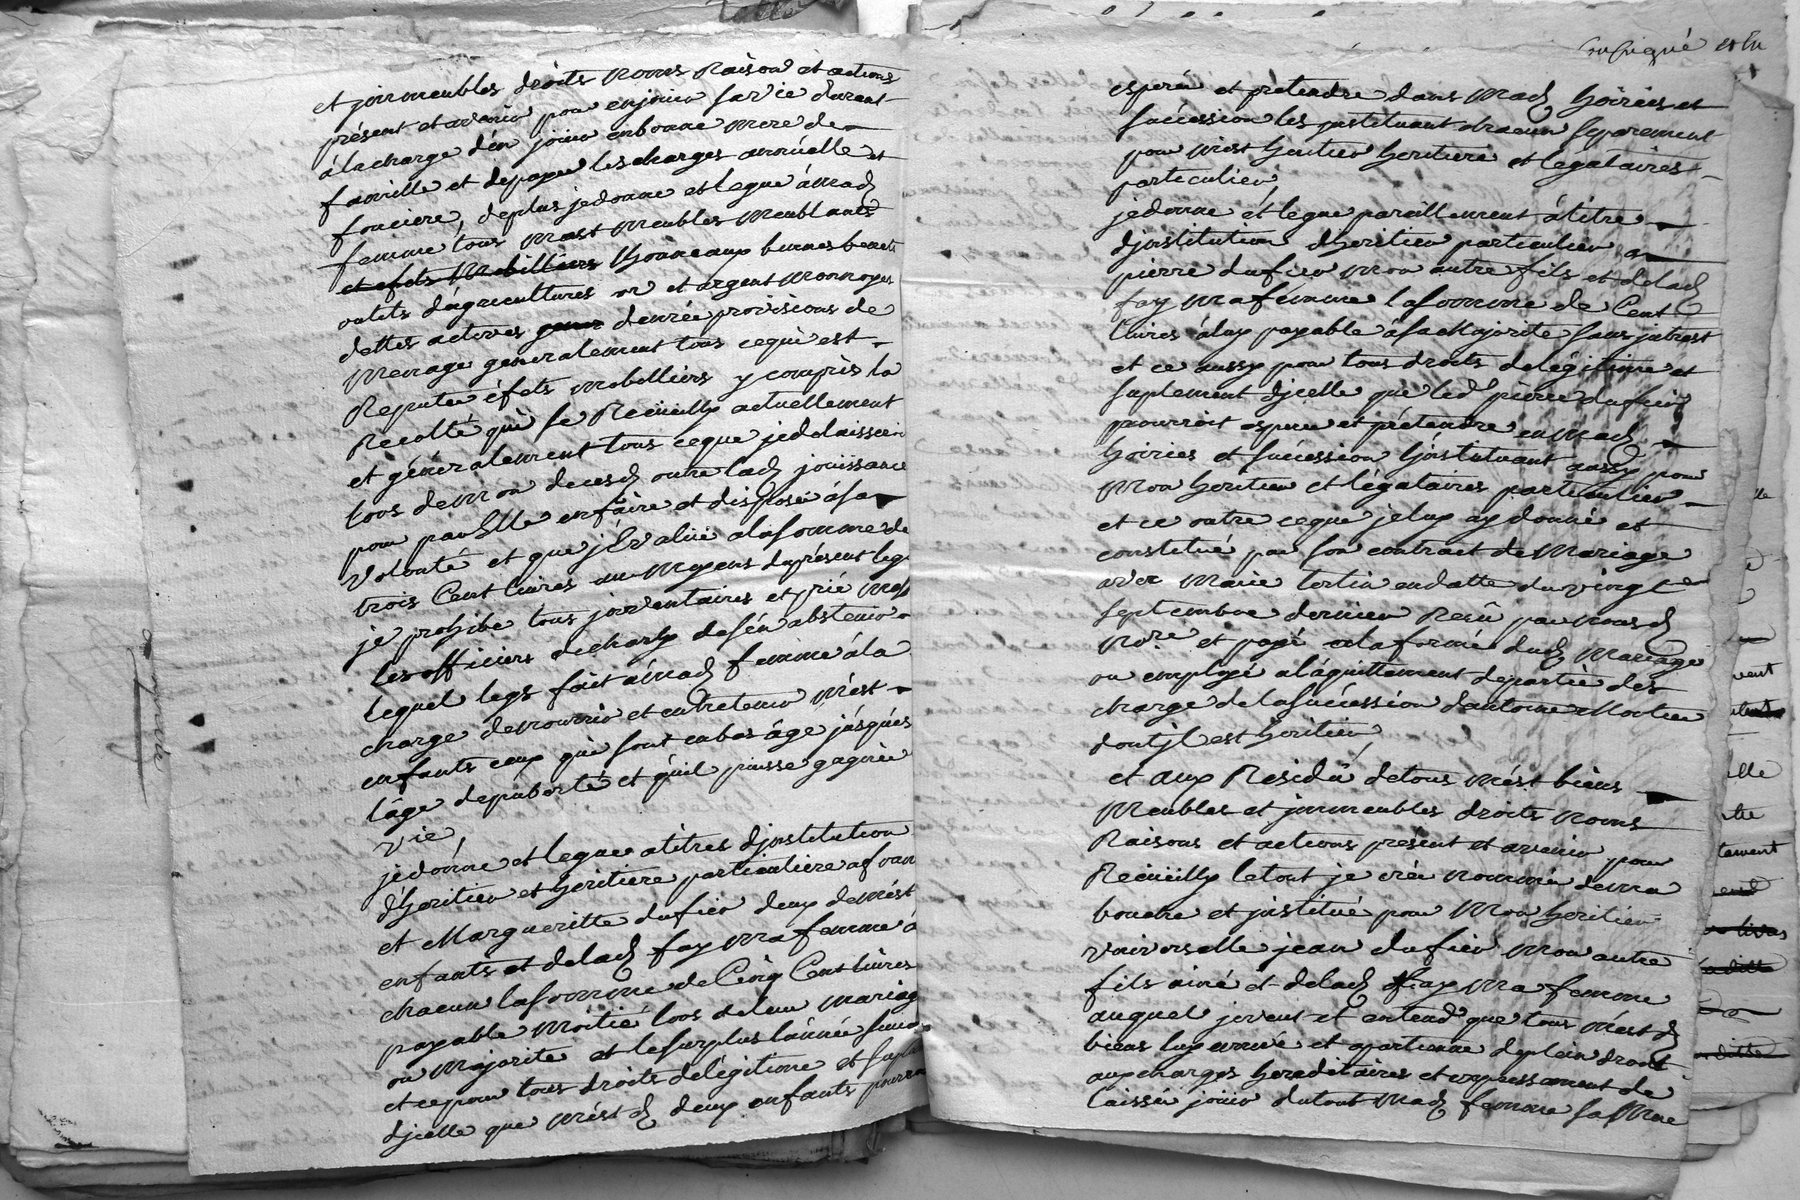 et jmmeubles droits noms Raison et actions
présent et avenir pour enjouir sa vie durent
à la charge d'én jouir enbonne mere de
famille et depayer les charges annuelle et
fonciere, deplus je donne et legue à mad
femme tous mest meubles meublants
et efets mobilliers Bonneaux
outils dágricultures or et argent monnoyés
dettes actives denrée provisions de
menage generalement tous cequi est
Reputer éfets mobelliers y compris la
Recolte qui se Recueilly actuellement
et généralement tous ceque jedelaisserai
lors de mon deces outre lad jouissance
pour par Elle enfaire et disposé à sa
volonté et que j'Evalüe a la somme de
trois Cent livres au moyens du présent legs
je prohibe tous jnventaires et prie
les officiers de charly de s'én abstenir
lequel legs fait á mad femme á la
charge de nourrir et entretenir mést
enfants eux qui sont en bas âge jusques
l'âge depuberté et quil puisse gagner
vie,
je donne et legue a titres djnstitution
d'heritier et heritiere particuliere a
et Margueritte dufier deux demést
enfants et de lad fay ma femme á
chacun la somme de Cinq Cent livres
payable moitié lors de leur mariage
ou majorite et le surplus l'année
et ce pour tous droits delégitime et
djcelle que mést d deux enfants
et lu
esperer et pretendre dans mad hoiries et
succéssion les jnstituant chacun separement
pour mest heritier heritiere et legataires
particulier,
je donne et legue pareillement à titre
djnstitution dheritier particulier a
pierre dufier mon autre fils et de lad
fay ma fémme la somme de Cent
livres à luy payable à sa Majorite sans jntrest
et ce aussy pour tous droits delégitime et
suplement djcelle que led pierre dufier
pourroit esperer et prétendre en mad
hoiries et succéssion L'jnstituant aussy pour
mon heritier et légataires particulier
et ce outre ceque je luy ay donné et
constitué par son contrat de Mariage
avec Marie tortin en datte du vingt
septembre dernier Recû par nousd
No.re et payé a la forme dud mariage
ou employé a láquittement departie des
charge de la succéssion dantoine
dont jl est heritier,
et aux Residû de tous mést biens
Meubles et jmmeubles droits noms
Raisons et actions présent et avenir pour
Recüeilly le tout je crée nomme de ma
bouche et jnstitué pour Mon heritier
universelle jean dufier mon autre
fils ainé et de lad fay ma femme
auquel je veut et entend que tous mést d
biens luy arrivé et apartienne deplein droit
aux charges hereditaires et expressement de
laisser jouir du tout mad femme sa mere